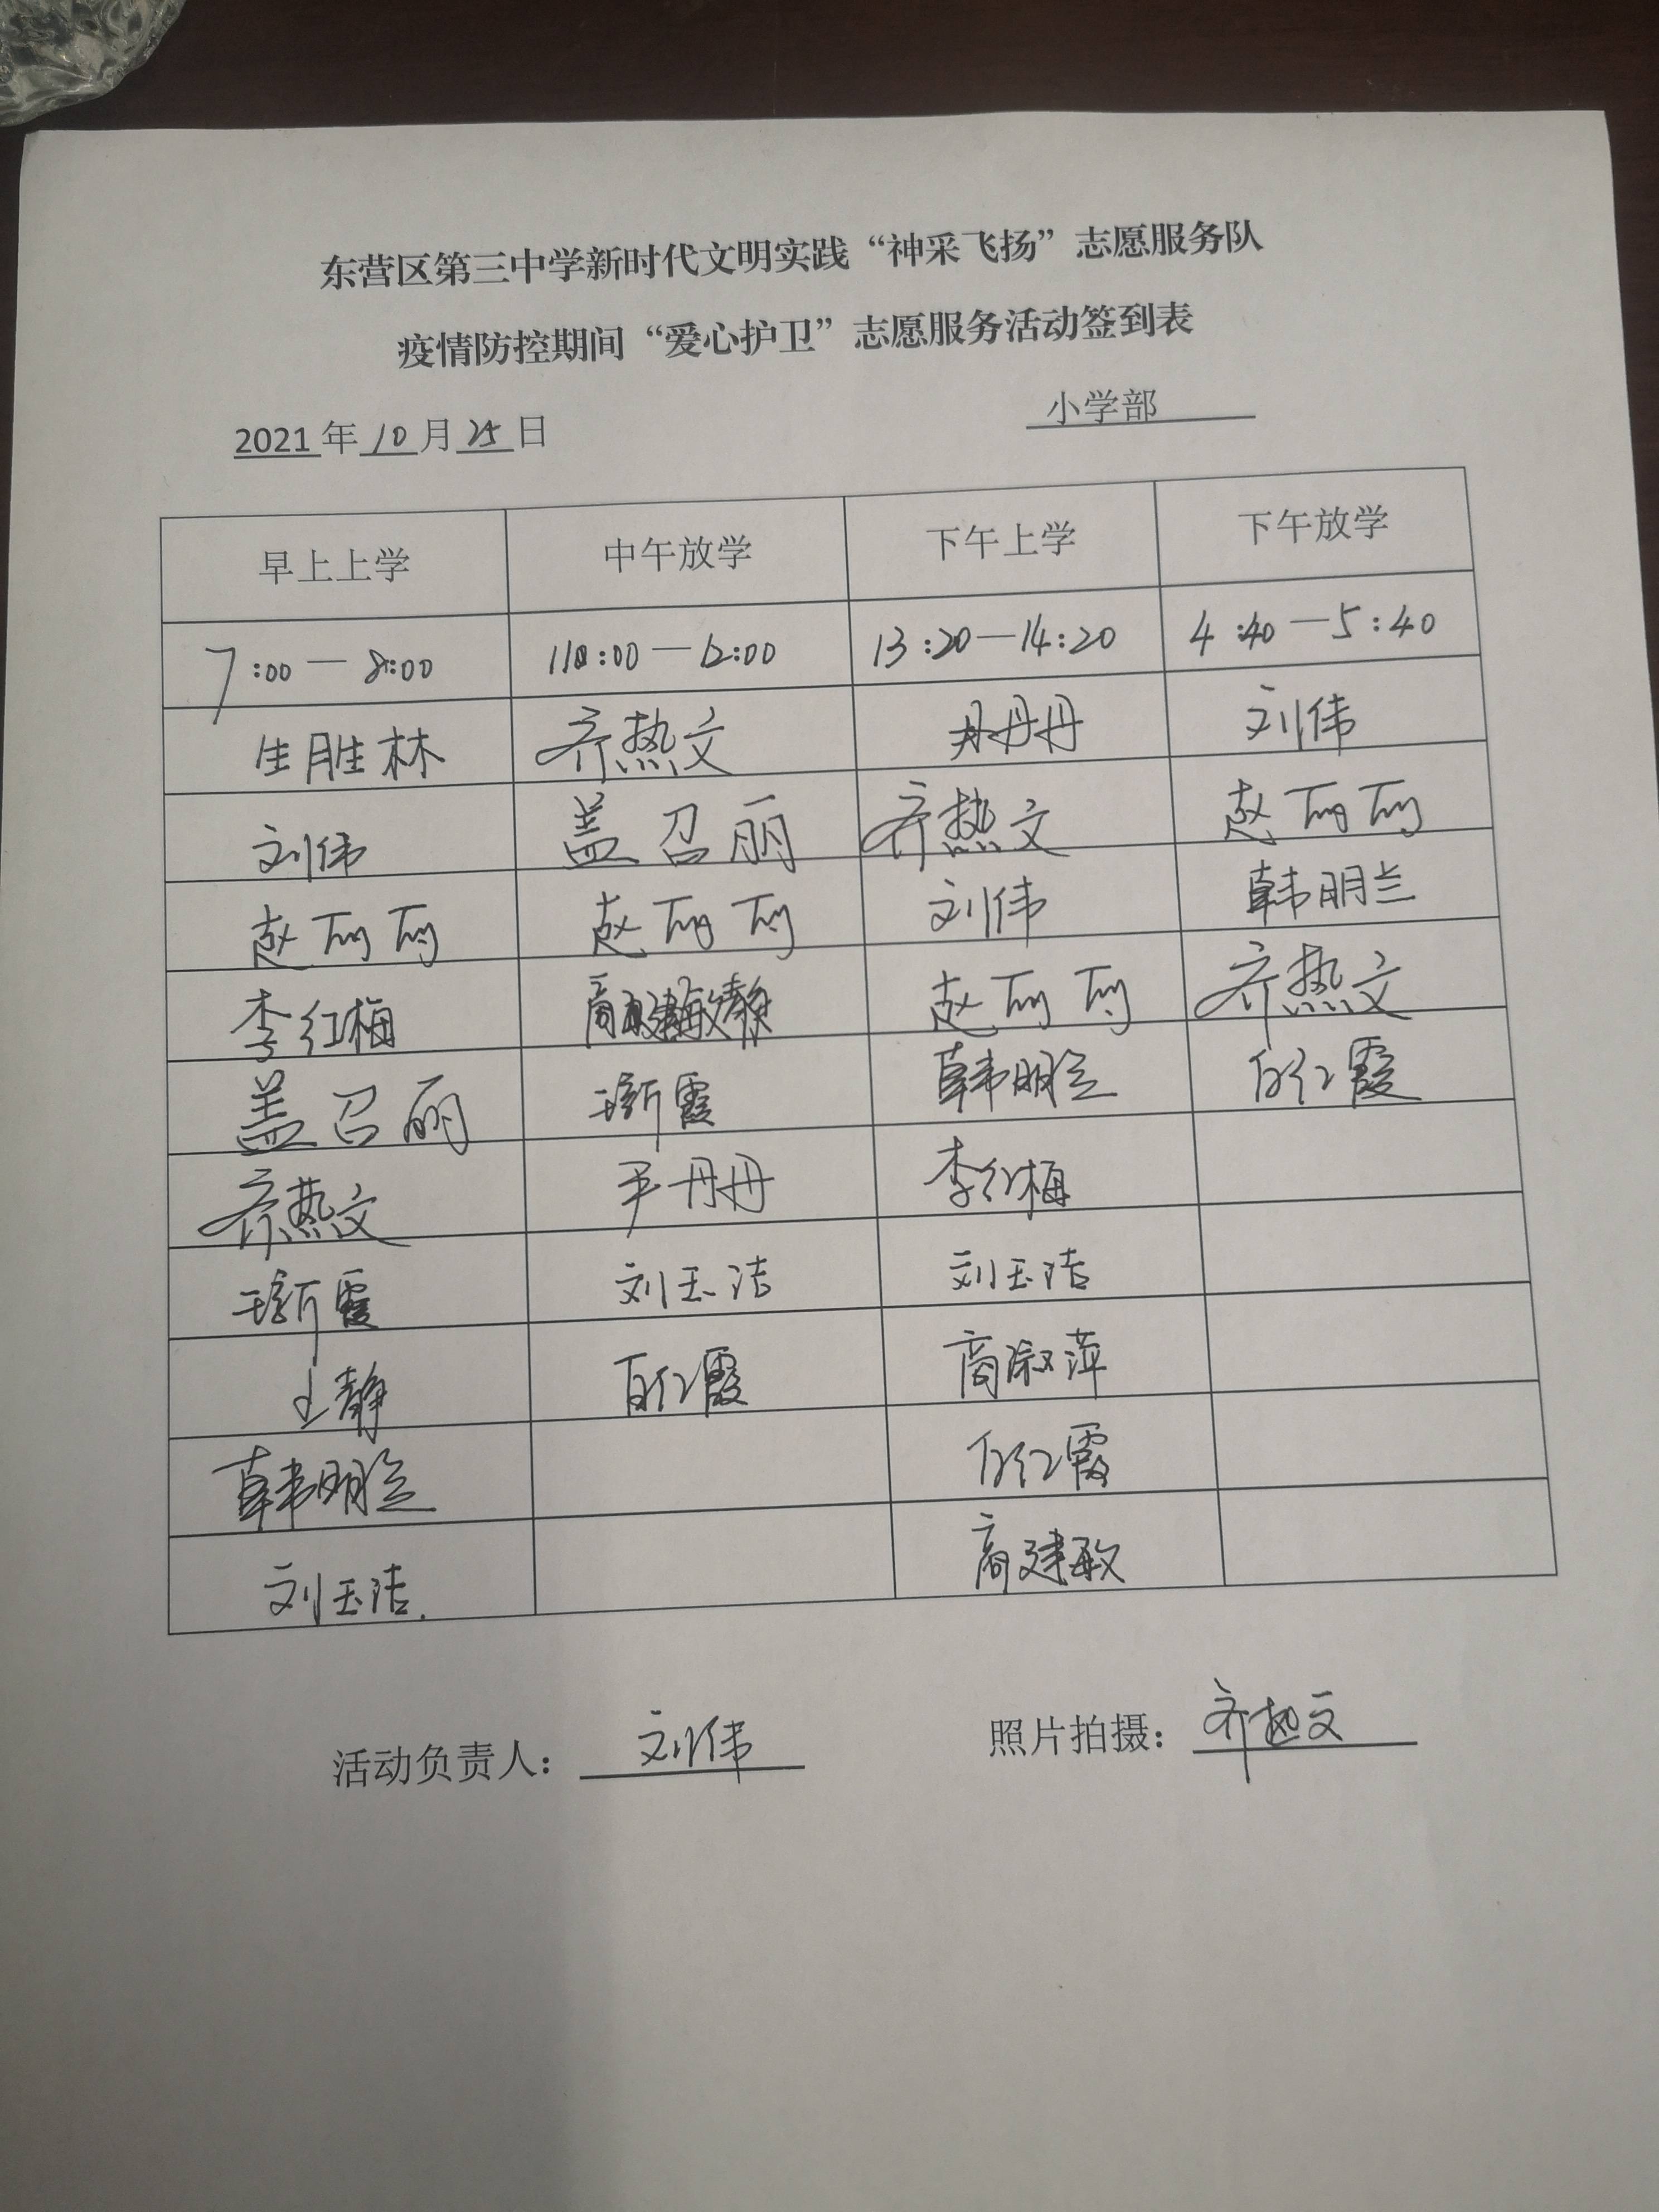 东营区第三中学新时代文明实践“神采飞扬”志愿服务队
疫情防控期间“爱心护卫”志愿服务活动签到表
2021年10月25日 小学部
早上上学 中午放学 下午上学 下午放学
7:00—8:00 11:00—12:00 13:20—14:20 4:40—5:40
生胜林 齐热文 丹丹 刘伟
刘伟 盖召丽 齐热文 赵丽丽
赵丽丽 赵丽丽 刘伟 韩明兰
李红梅 赵丽丽 齐热文
盖召丽 新霞 韩明兰 白红霞
齐热文 丹丹 李红梅
新霞 刘玉洁 刘玉洁
王静 白红霞 商淑萍
韩明兰 白红霞
刘玉洁. 商建敏
活动负责人：刘伟 照片拍摄：齐热文